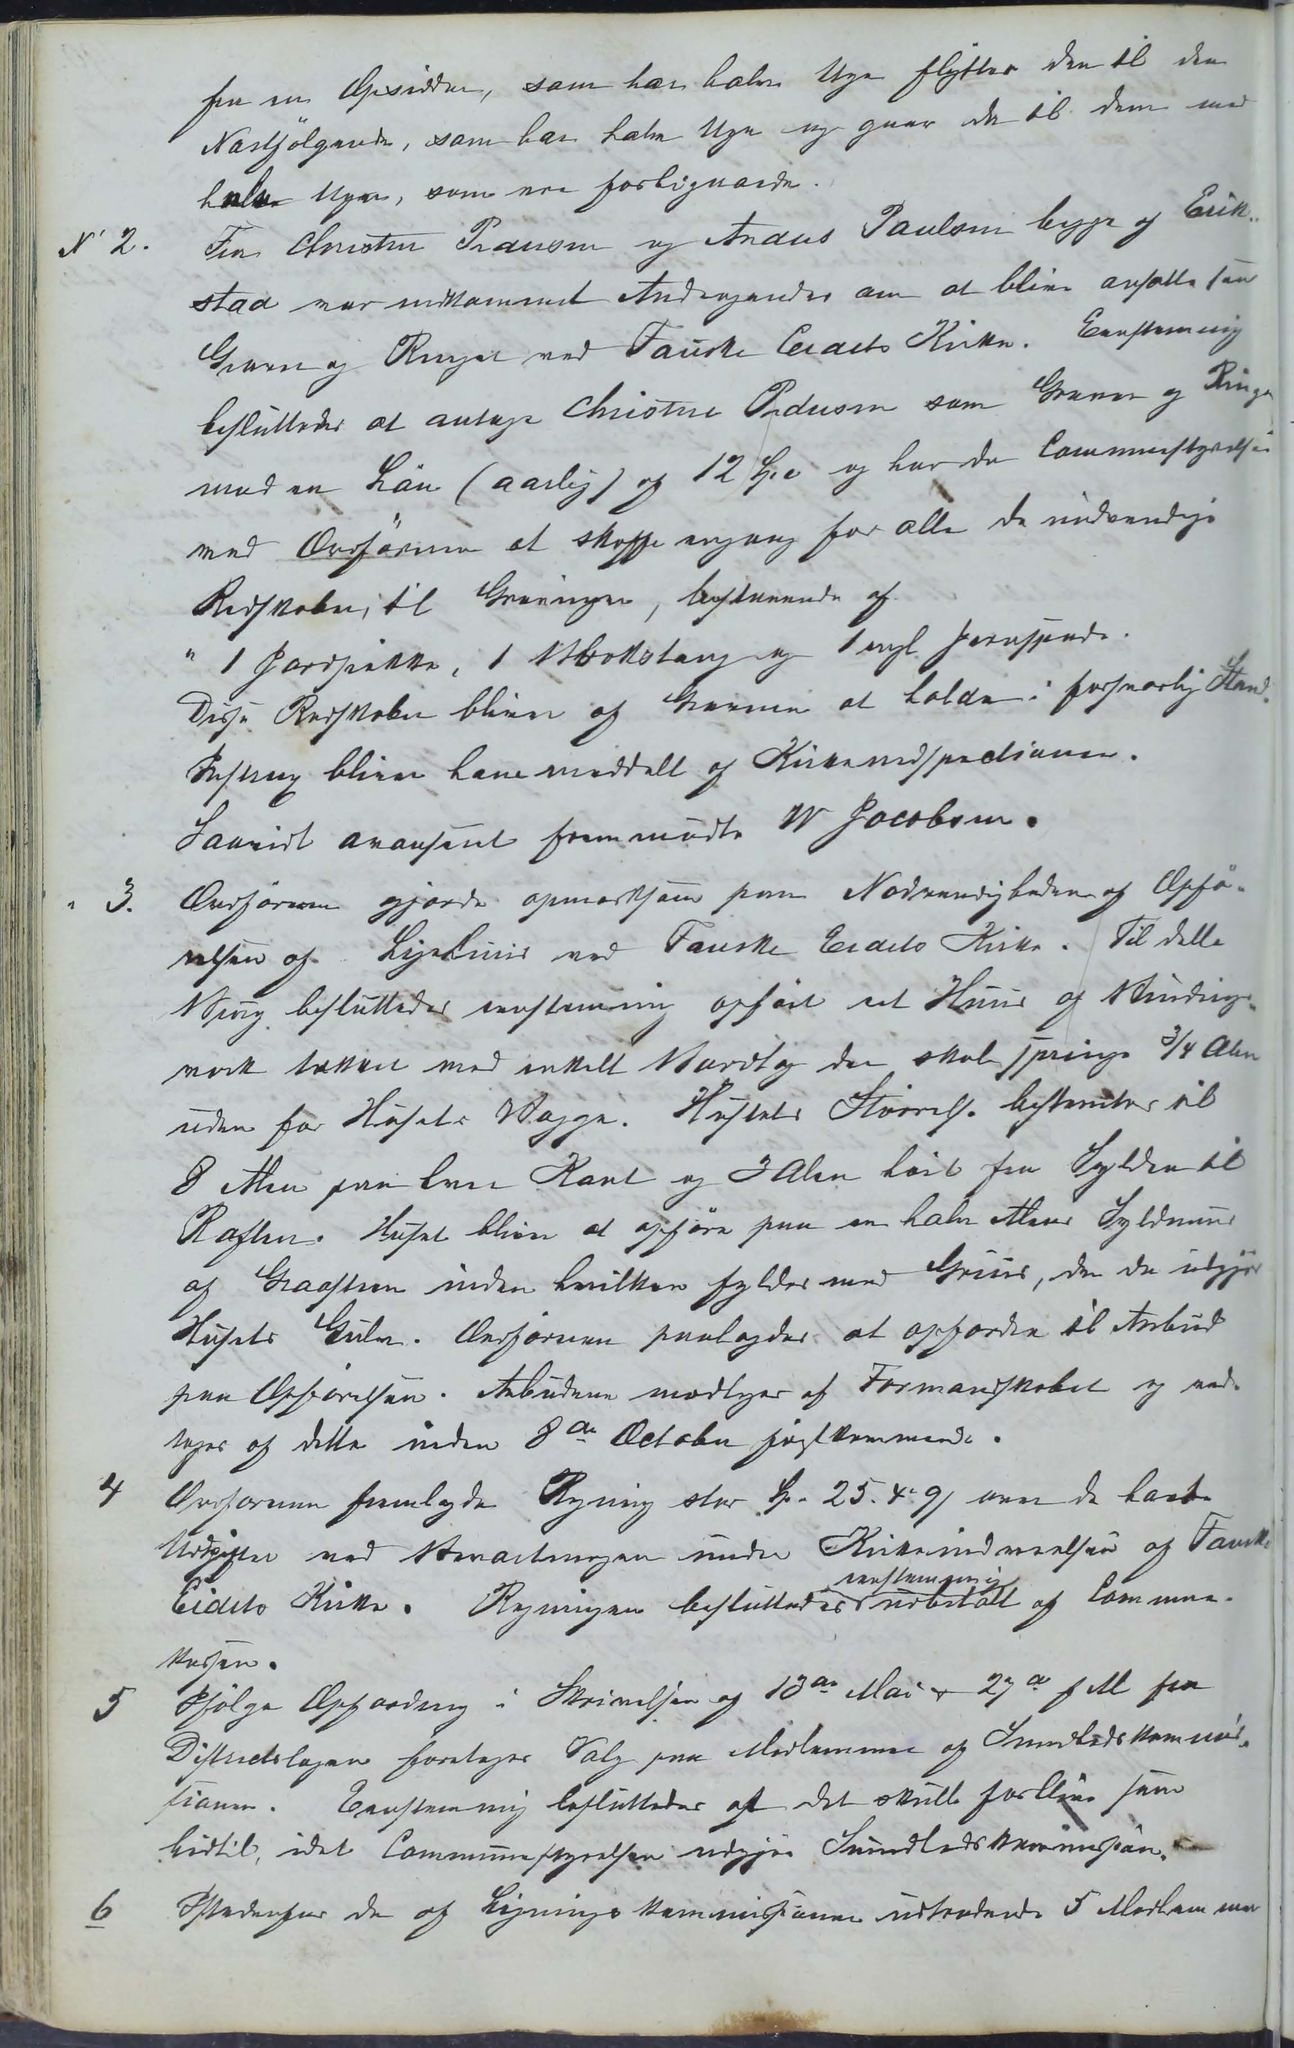 fra en Opsidder, som har halve Uge flyttes den til den
Næstfølgende, som har halve Uge og gaar da til dem med
halve Uger, som ere forbigaaede.
N 2. Fra Christen Pedersen og Andreas Paulsen begge af Erik-
stad var indkommet Andragender om at blive ansatte som
Graver og Ringer ved Fauske Eidets Kirke. Eenstemmig
besluttedes at antage Christen Pedersen som Graver og Ringer
mod en Løn (aarlig) af 12 Spd og har da Communestyrelsen
ved Ordføreren at skaffe engang for alle de nødvendige
Redskaber til Gravingen, bestaaende af
" 1 Jordhakke, 1 Brækstang og 1 engl Jernspade.
Disse Redskaber bliver af Graveren at holde i forsvarlig Stand.
Instrux bliver ham meddelt af Kirkeinspectionen.
Saavidt avanseret fremmødte W Jacobsen.
" 3. Ordføreren gjorde opmærksom paa Nødvendigheden af Opfø-
relsen af Liighuus ved Fauske Eidets Kirke. Til dette
Brug besluttedes eenstemmig opført et Huus af Bindings-
værk tækket med enkelt Bordtag der skal springe 3/4 Alen
uden for Husets Vægge. Husets Størrelse bestemtes til
8 Alen paa hver Kant og 3 Alen høit fra Sylden til
Raften. Huset bliver at opføre paa en halv Alens Syldmuur
af Graasteen inden hvilken fyldes med Gruus, der da udgjør
Husets Gulv. Ordføreren paalagdes at opfordre til Anbud
paa Opførelsen. Anbudene modtages af Formandskabet og ved-
tages af dette inden 8de October førstkommende.
4 Ordføreren fremlagde Regning stor Sp. 25. 4. 9 over de havte
Udgifter ved Bevertningen under Kirkeindvielsen af Fauske
eenstemmig
Eidets Kirke. Regningen besluttedes udbetalt af Commune-
kassen.
5 Ifølge Opfordring i Skrivelser af 13de Mai & 27de f M fra
Districtslægen foretages Valg paa Medlemmer af Sundhedskommis-
sionen. Eenstemmig besluttedes at det skulle forblive som
hidtil, idet Communestyrelsen udgjør Sundhedskommission.
6 Istedenfor de af Ligningskommissionen udtrædende 5 Medlemmer